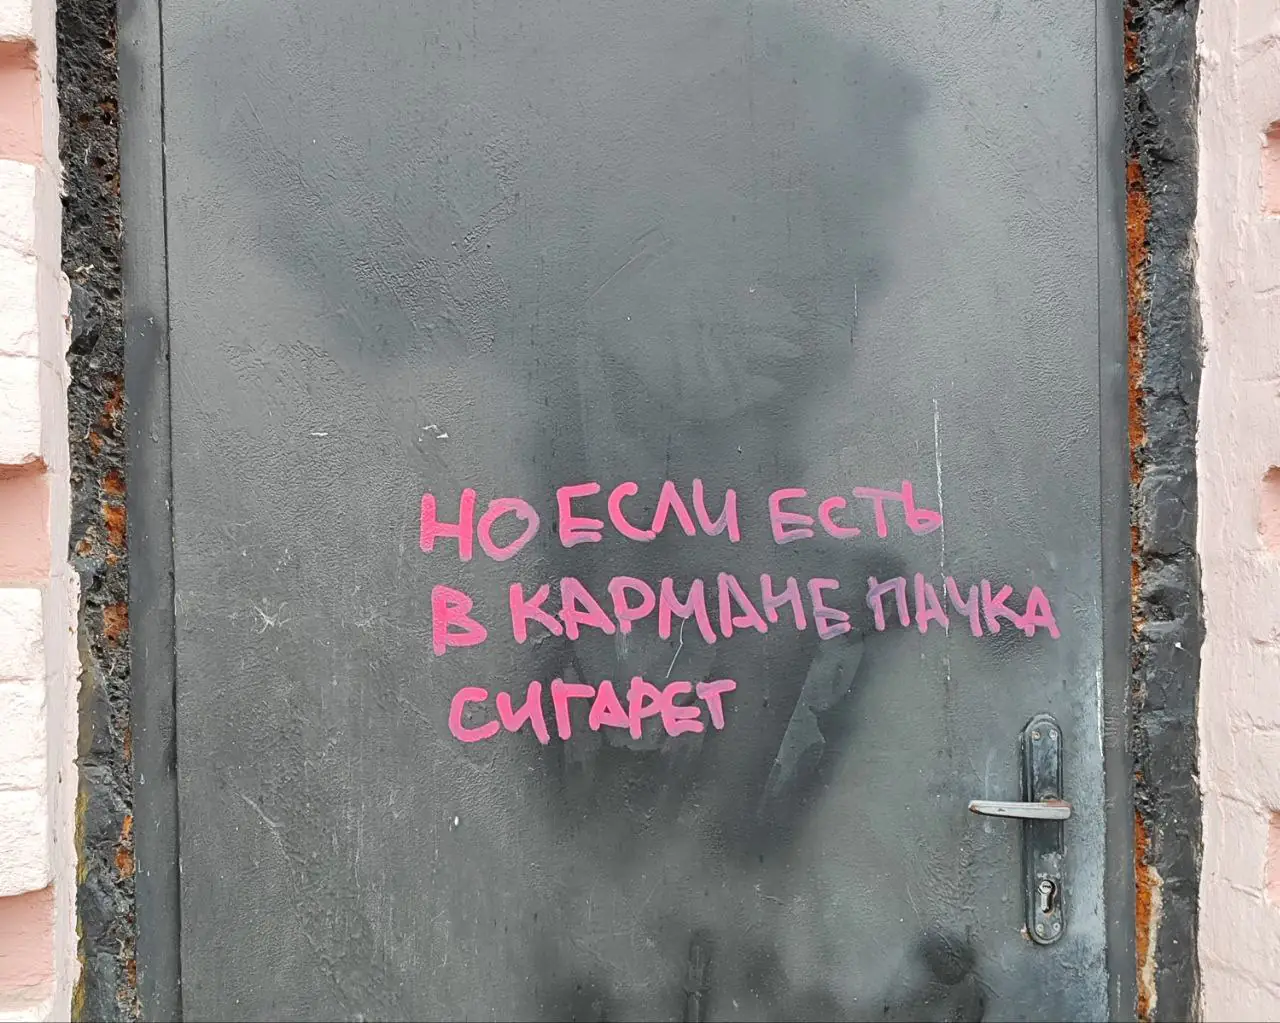 НО ЕСЛИ ЕСТЬ
В КАРМАНЕ ПАЧКА
СИГАРЕТ